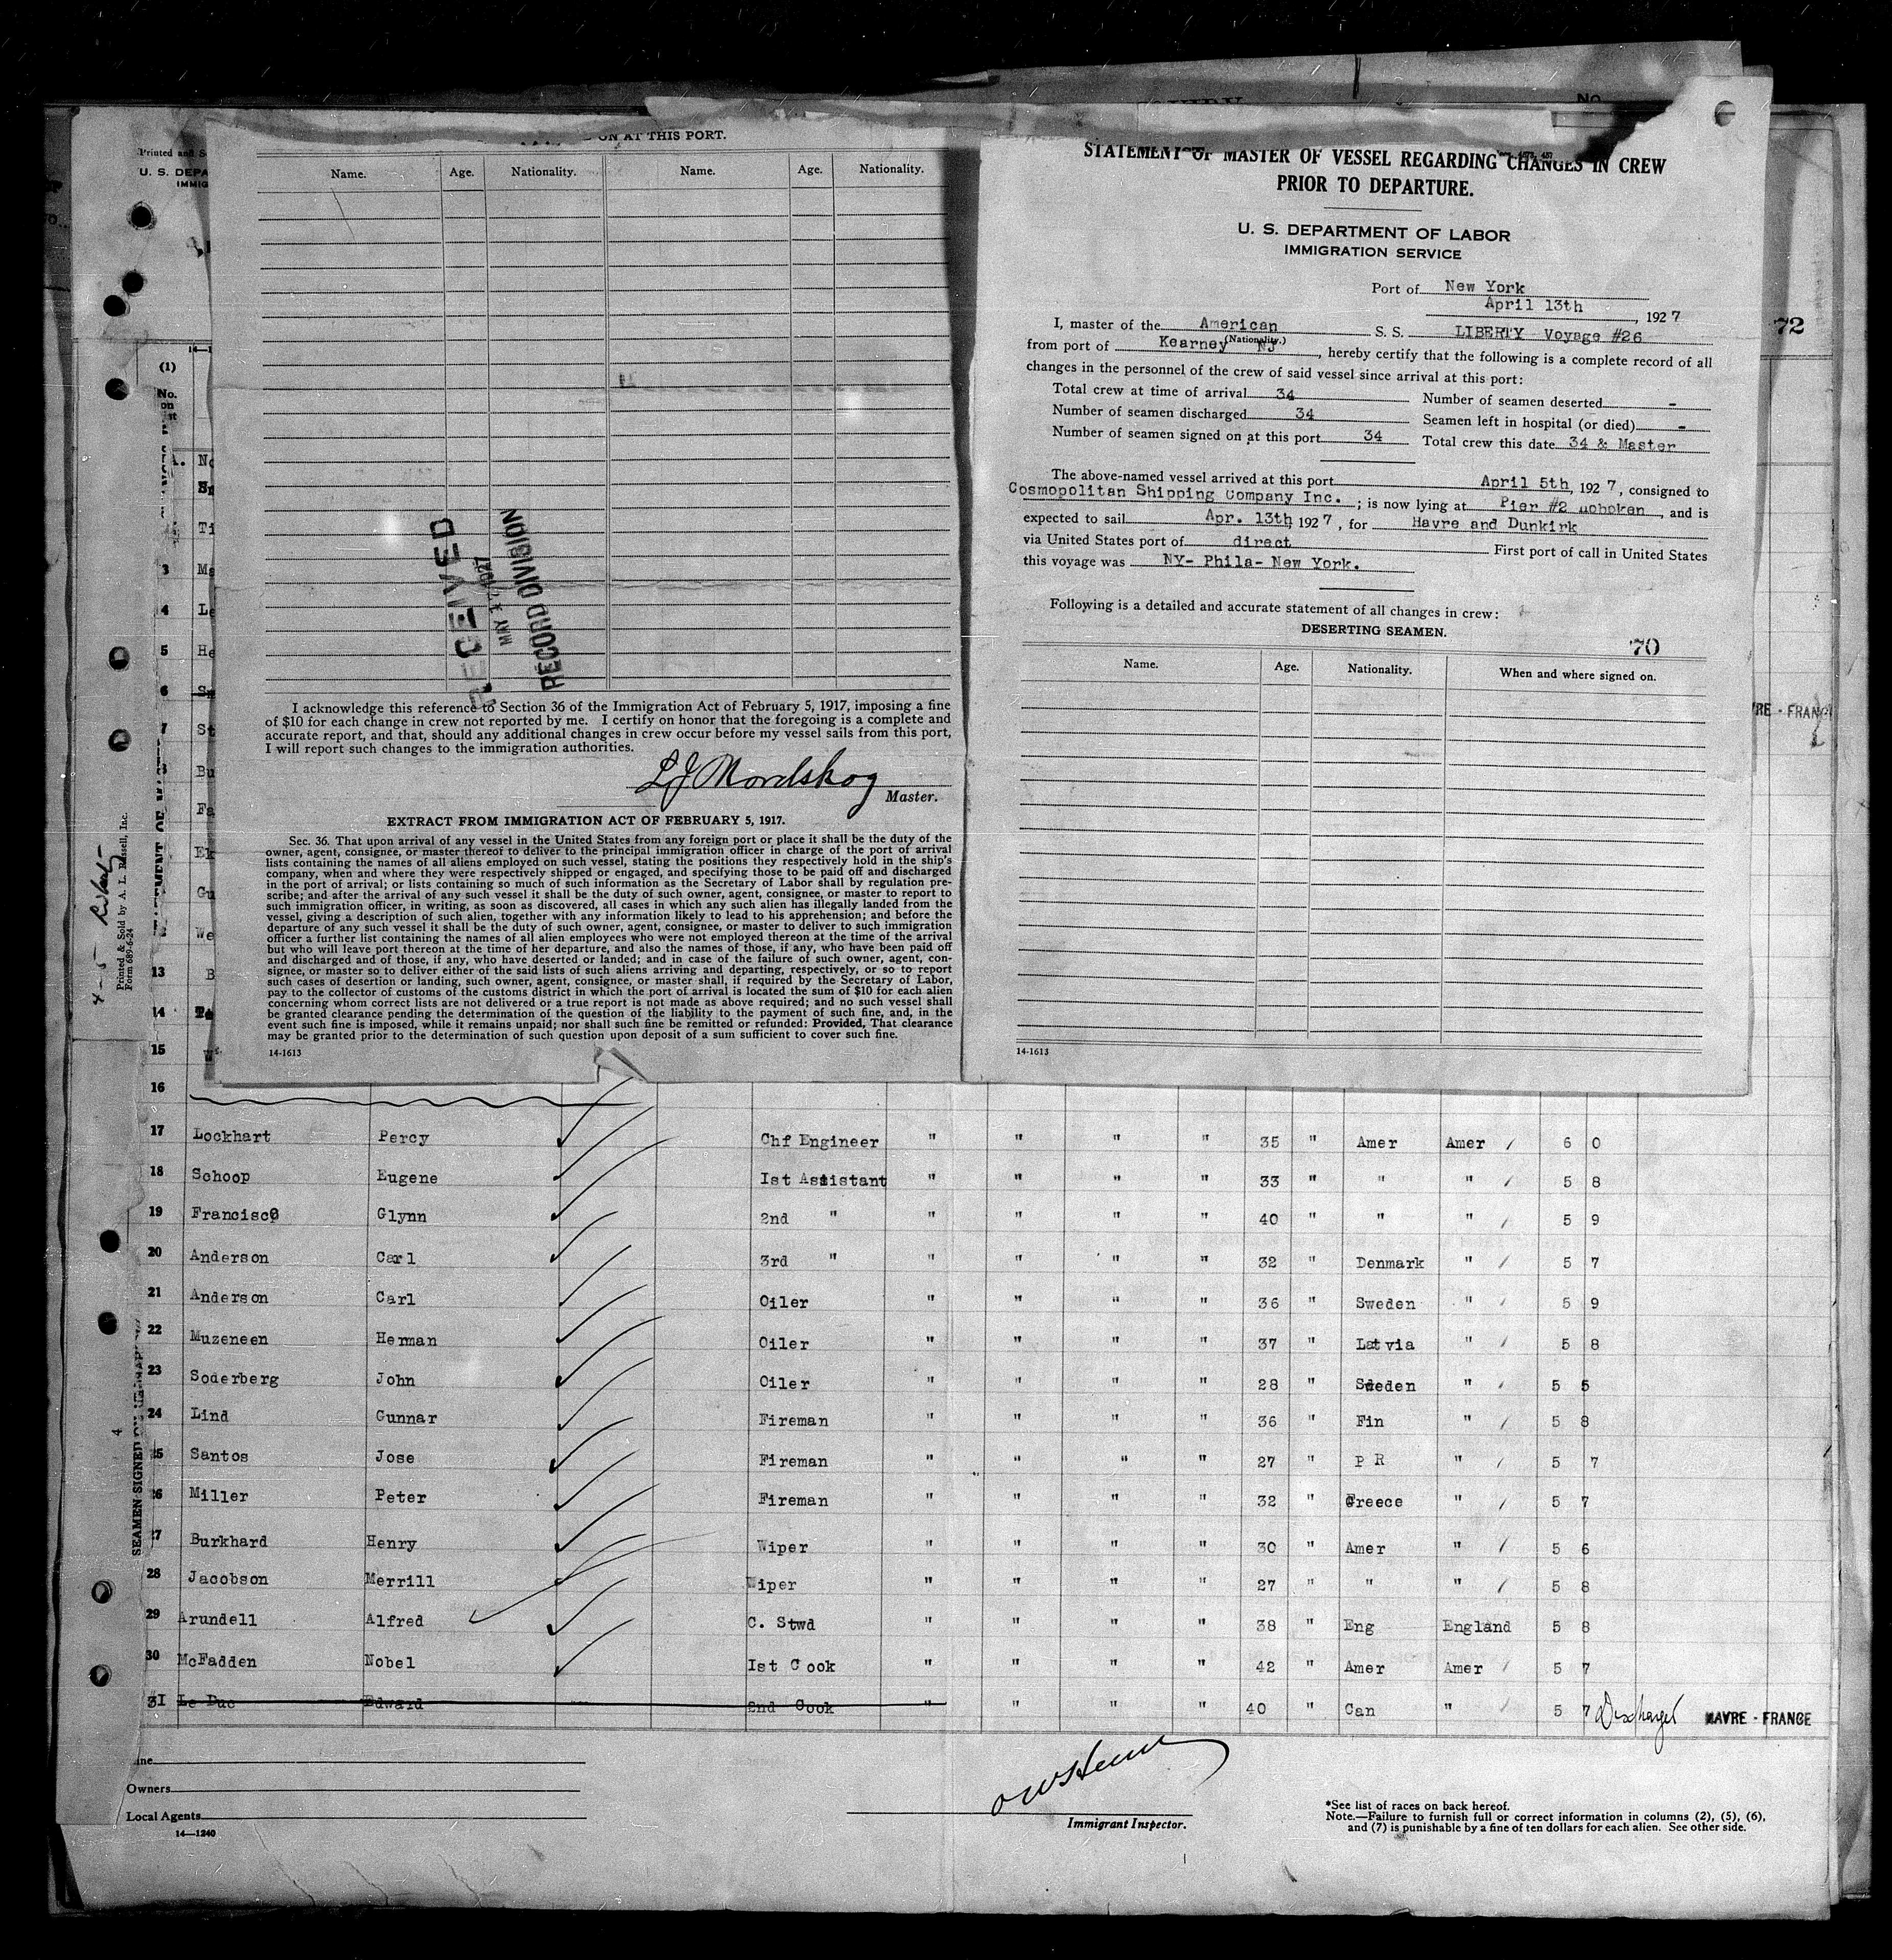 ON AT THIS PORT.
Name. Age. Nationality. Name. Age. Nationality.
RECEIVED
1927
RECORD DIVISION
I acknowledge this reference to Section 36 of the Immigration Act of February 5, 1917, imposing a fine
of $10 for each change in crew not reported by me. I certify on honor that the foregoing is a complete and
accurate report, and that, should any additional changes in crew occur before my vessel sails from this port,
I will report such changes to the immigration authorities.
L J Nordskog
Master.
EXTRACT FROM IMMIGRATION ACT OF FEBRUARY 5, 1917.
Sec. 36. That upon arrival of any vessel in the United States from any foreign port or place it shall be the duty of the
owner, agent, consignee, or master thereof to deliver to the principal immigration officer in charge of the port of arrival
lists containing the names of all aliens employed on such vessel, stating the positions they respectively hold in the ship's
company, when and where they were respectively shipped or engaged, and specifying those to be paid off and discharged
in the port of arrival; or lists containing so much of such information as the Secretary of Labor shall by regulation pre-
scribe; and after the arrival of any such vessel it shall be the duty of such owner, agent, consignee, or master to report to
such immigration officer, in writing, as soon as discovered, all cases in which any such alien has illegally landed from the
vessel, giving a description of such alien, together with any information likely to lead to his apprehension; and before the
departure of any such vessel it shall be the duty of such owner, agent, consignee, or master to deliver to such immigration
officer a further list containing the names of all alien employees who were not employed thereon at the time of the arrival
but who will leave port thereon at the time of her departure, and also the names of those, if any, who have been paid off
and discharged and of those, if any, who have deserted or landed; and in case of the failure of such owner, agent, con-
signee, or master so to deliver either of the said lists of such aliens arriving and departing, respectively, or so to report
such cases of desertion or landing, such owner, agent, consignee, or master shall, if required by the Secretary of Labor,
pay to the collector of customs of the customs district in which the port of arrival is located the sum of $10 for each alien
concerning whom correct lists are not delivered or a true report is not made as above required; and no such vessel shall
be granted clearance pending the determination of the question of the liability to the payment of such fine, and, in the
event such fine is imposed, while it remains unpaid; nor shall such fine be remitted or refunded: Provided, That clearance
may be granted prior to the determination of such question upon deposit of a sum sufficient to cover such fine.
14-1613
STATEMENT OF MASTER OF VESSEL REGARDING CHANGES IN CREW
PRIOR TO DEPARTURE.
U. S. DEPARTMENT OF LABOR
IMMIGRATION SERVICE
Port of New York
April 13th, 1927
I, master of the American S. S. LIBERTY Voyage #26
(Nationality.)
from port of Kearney NJ, hereby certify that the following is a complete record of all
changes in the personnel of the crew of said vessel since arrival at this port:
Total crew at time of arrival 34 Number of seamen deserted -
Number of seamen discharged 34 Seamen left in hospital (or died) -
Number of seamen signed on at this port 34 Total crew this date 34 & Master
The above-named vessel arrived at this port April 5th, 1927, consigned to
Cosmopolitan Shipping Company Inc.; is now lying at Pier #2 Hoboken, and is
expected to sail Apr. 13th 1927, for Havre and Dunkirk
via United States port of direct First port of call in United States
this voyage was NY- Phila- New York.
Following is a detailed and accurate statement of all changes in crew:
DESERTING SEAMEN.
70
Name. Age. Nationality. When and where signed on.
14-1613
72
Printed & Sold by A. L. Russell, Inc.
Form 689-6-24
(1)
No.
on
3
4
5
6
7
13
14
15
16
17 Lockhart Percy Chf Engineer " " " " 35 " Amer Amer 6 0
18 Schoop Eugene Ist Assistant " " " " 33 " " " 5 8
19 Francisco Glynn 2nd " " " " " 40 " " " 5 9
20 Anderson Carl 3rd " " " " " 32 " Denmark " 5 7
21 Anderson Carl Oiler " " " " 36 " Sweden " 5 9
22 Muzeneen Herman Oiler " " " " 37 " Latvia " 5 8
23 Soderberg John Oiler " " " " 28 " Sweden " 5 5
24 Lind Gunnar Fireman " " " " 36 " Fin " 5 8
25 Santos Jose Fireman " " " " 27 " P R " 5 7
26 Miller Peter Fireman " " " " 32 " Greece " 5 7
27 Burkhard Henry Wiper " " " " 30 " Amer " 5 6
28 Jacobson Merrill Wiper " " " " 27 " " " 5 8
29 Arundell Alfred C. Stwd " " " " 38 " Eng England 5 8
30 McFadden Nobel Ist Cook " " " " 42 " Amer Amer 5 7
31 Le Duc Edward 2nd Cook " " " " 40 " Can " 5 7 Discharged HAVRE - FRANCE
Owners
Local Agents
14—1240
Immigrant Inspector.
*See list of races on back hereof.
Note.—Failure to furnish full or correct information in columns (2), (5), (6),
and (7) is punishable by a fine of ten dollars for each alien. See other side.